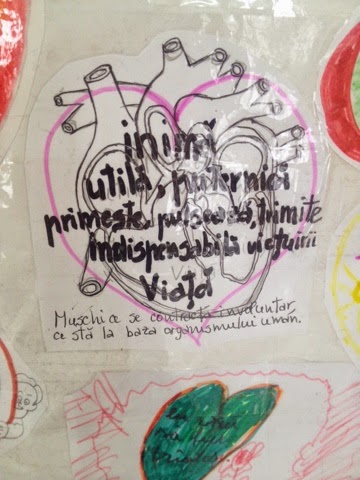 inimă
utilă, puternică
primește, pulsează, trimite
indispensabilă viețuirii
Viață
Mușchi ce se contractă involuntar,
ce stă la baza organismului uman.